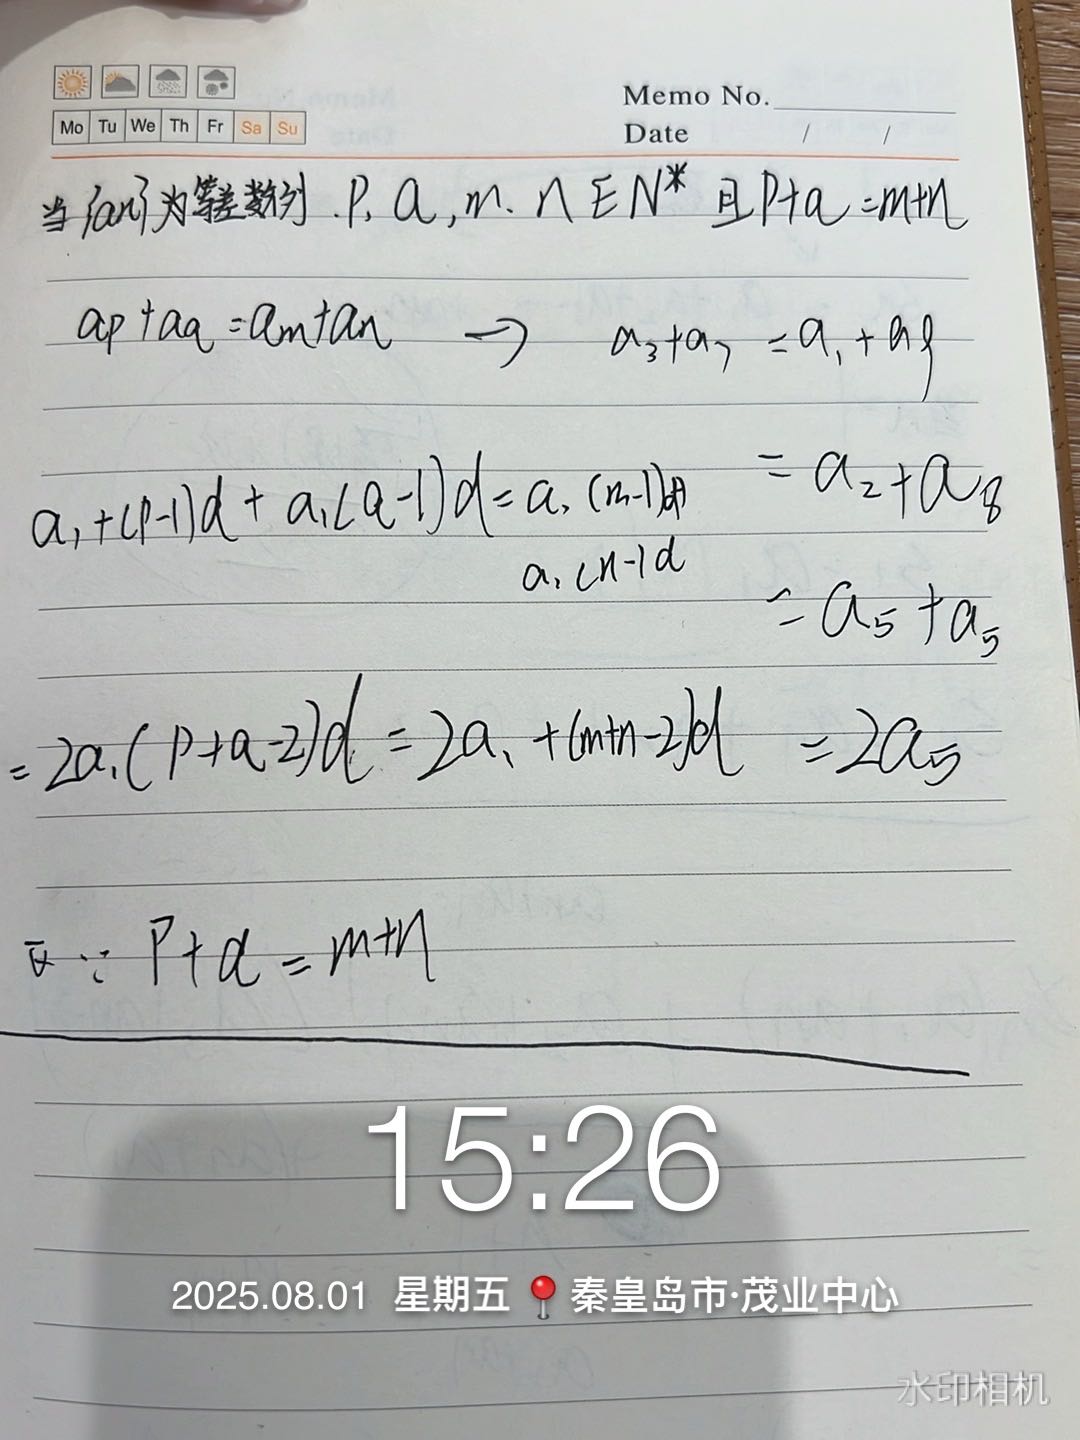 Memo No.
Mo Tu We Th Fr Sa Su
Date / /
当{an}为等差数列.P,a,m.n∈N*且P+a=m+n
ap+aq=am+an → a₃+a₇=a₁+a9
a₁+(P-1)d+a₁(a-1)d=a₁(m-1)d =a₂+a₈
a₁(n-1d
=a₅+a₅
=2a₁(P+a-2)d=2a₁+(m+n-2)d =2a₅
又∵P+a=m+n
15:26
2025.08.01 星期五 秦皇岛市·茂业中心
水印相机